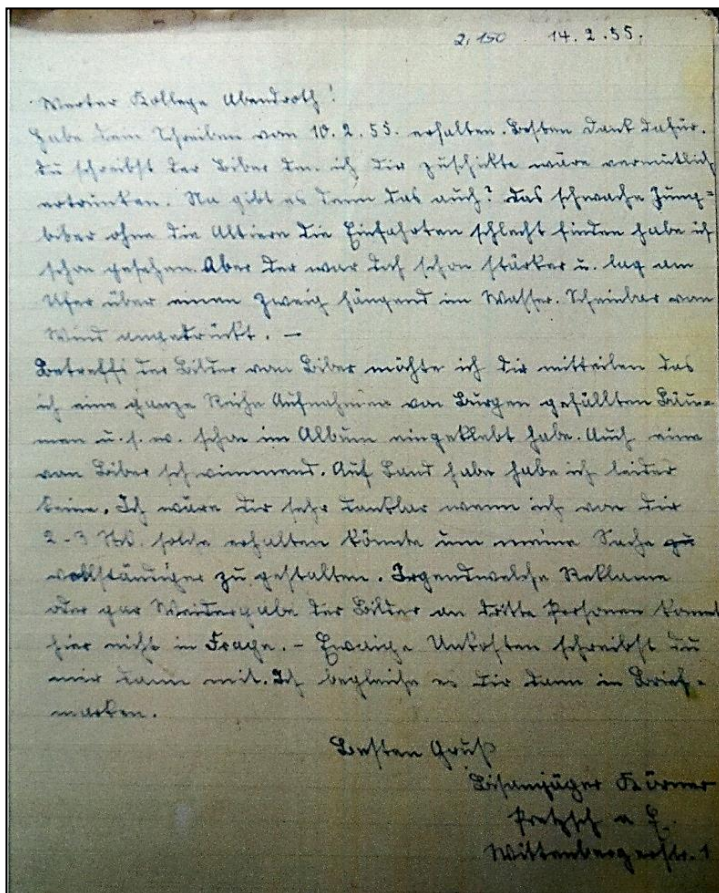 2,150 14.2.55.
Werter Kollege Abendroth!
Habe dein Schreiben vom 10.2.55. erhalten. Besten Dank dafür.
Du schreibst der Biber den. ich dir zuschikte wäre vermutlich
ertrunken. Na gibt es denn das auch? Das schwache Jung=
biber ohne die Alttiere die Einfahrten schlecht finden habe ich
schon gesehen. Aber der war doch schon stärker u. lag am
Ufer über einen Zweig hängend im Wasser. Scheinbar vom
Wind angedrückt. —
Betreffs der Bilder vom Biber möchte ich dir mitteilen das
ich eine ganze Reihe Aufnahmen von Burgen gefällten Bäu=
men u.s.w. schon im Album eingeklebt habe. Auch eine
vom Biber schwimmend. Auf Land habe habe ich leider
keine. Ich wäre dir sehr dankbar wenn ich von dir
2-3 Stk. solche erhalten könnte um meine Sache zu
vollständiger zu gestalten. Irgendwelche Reklame
oder gar Weidergabe der Bilder an dritte Personen kommt
hier nicht in Frage. - Ewaige Unkosten schreibst du
mir dann mit. Ich begleiche es dir dann in Brief-
marken.
Besten Gruß
Bisamjäger Körner
Pretzsch a E.
Wittenbergerstr. 1